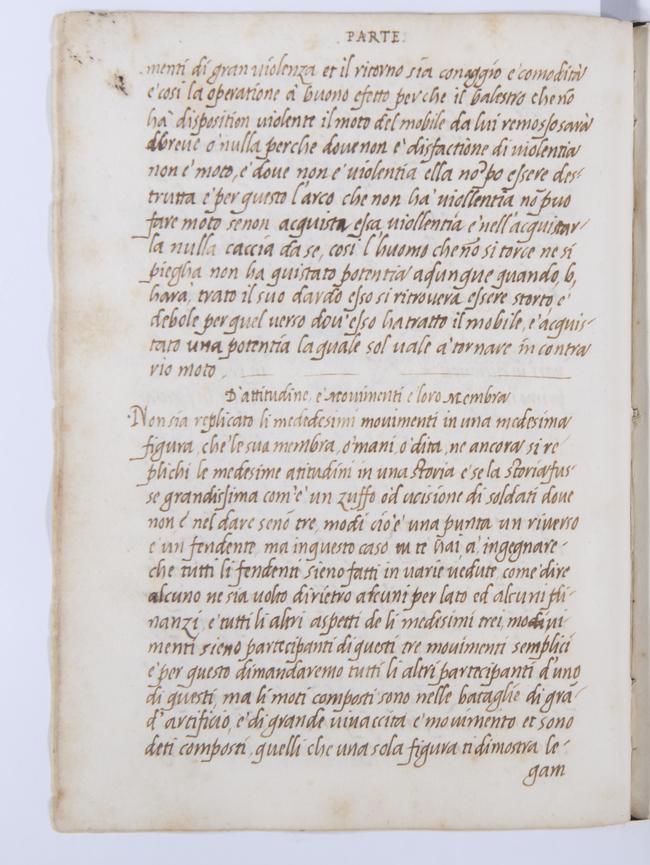 PARTE.
menti di gran violenza et il ritorno sia con aggio e comodità
e cosi la operatione à buono efetto perche il balestro che nõ
ha disposition violente il moto del mobile da lui remosso sarà
dibreve o nulla perche dove non e disfactione di violentia
non e moto, e dove non e violentia ella nõ po essere des-
trutta e per questo l'arco che non ha viollentia nõ puo
fare moto senon acquista essa viollentia e nell'acquistar-
la nulla caccia da se, cosi l'huomo che nõ si torce ne si
piegha non ha quistato potentia adunque quando, b,
harà, trato il suo dardo esso si ritrovera essere storto e
debole per quel verso dov'esso ha tratto il mobile, e acquis-
tato una potentia la quale sol vale a tornare in contra
rio moto
D'attitudine, e Movimenti e loro Membra
Non sia replicato li mededesimi movimenti in una medesima
figura, che le sua membra, o mani, o dita, ne ancora si re
plichi le medesime atitudini in una storia e se la storia fus-
se grandissima com'e un zuffo od ucisione di soldati dove
non é nel dare senõ tre, modi cio è una punta un riverso
e un fendente, ma in questo caso tu te hai a ingegnare-
che tutti li fendenti sieno fatti in varie vedute, come dire
alcuno ne sia volto dirietro alcuni per lato ed alcuni di-
nanzi, e tutti li altri aspetti de li medesimi trei, modivi
menti sieno partecipanti di questi tre movimenti semplici
e per questo dimandaremo tutti li altri partecipanti d'uno
di questi, ma li moti composti sono nelle bataglie di gra-
d'artificio, e di grande vivaccita e movimento et sono
deti composti, quelli che una sola figura ti dimostra le-
gam